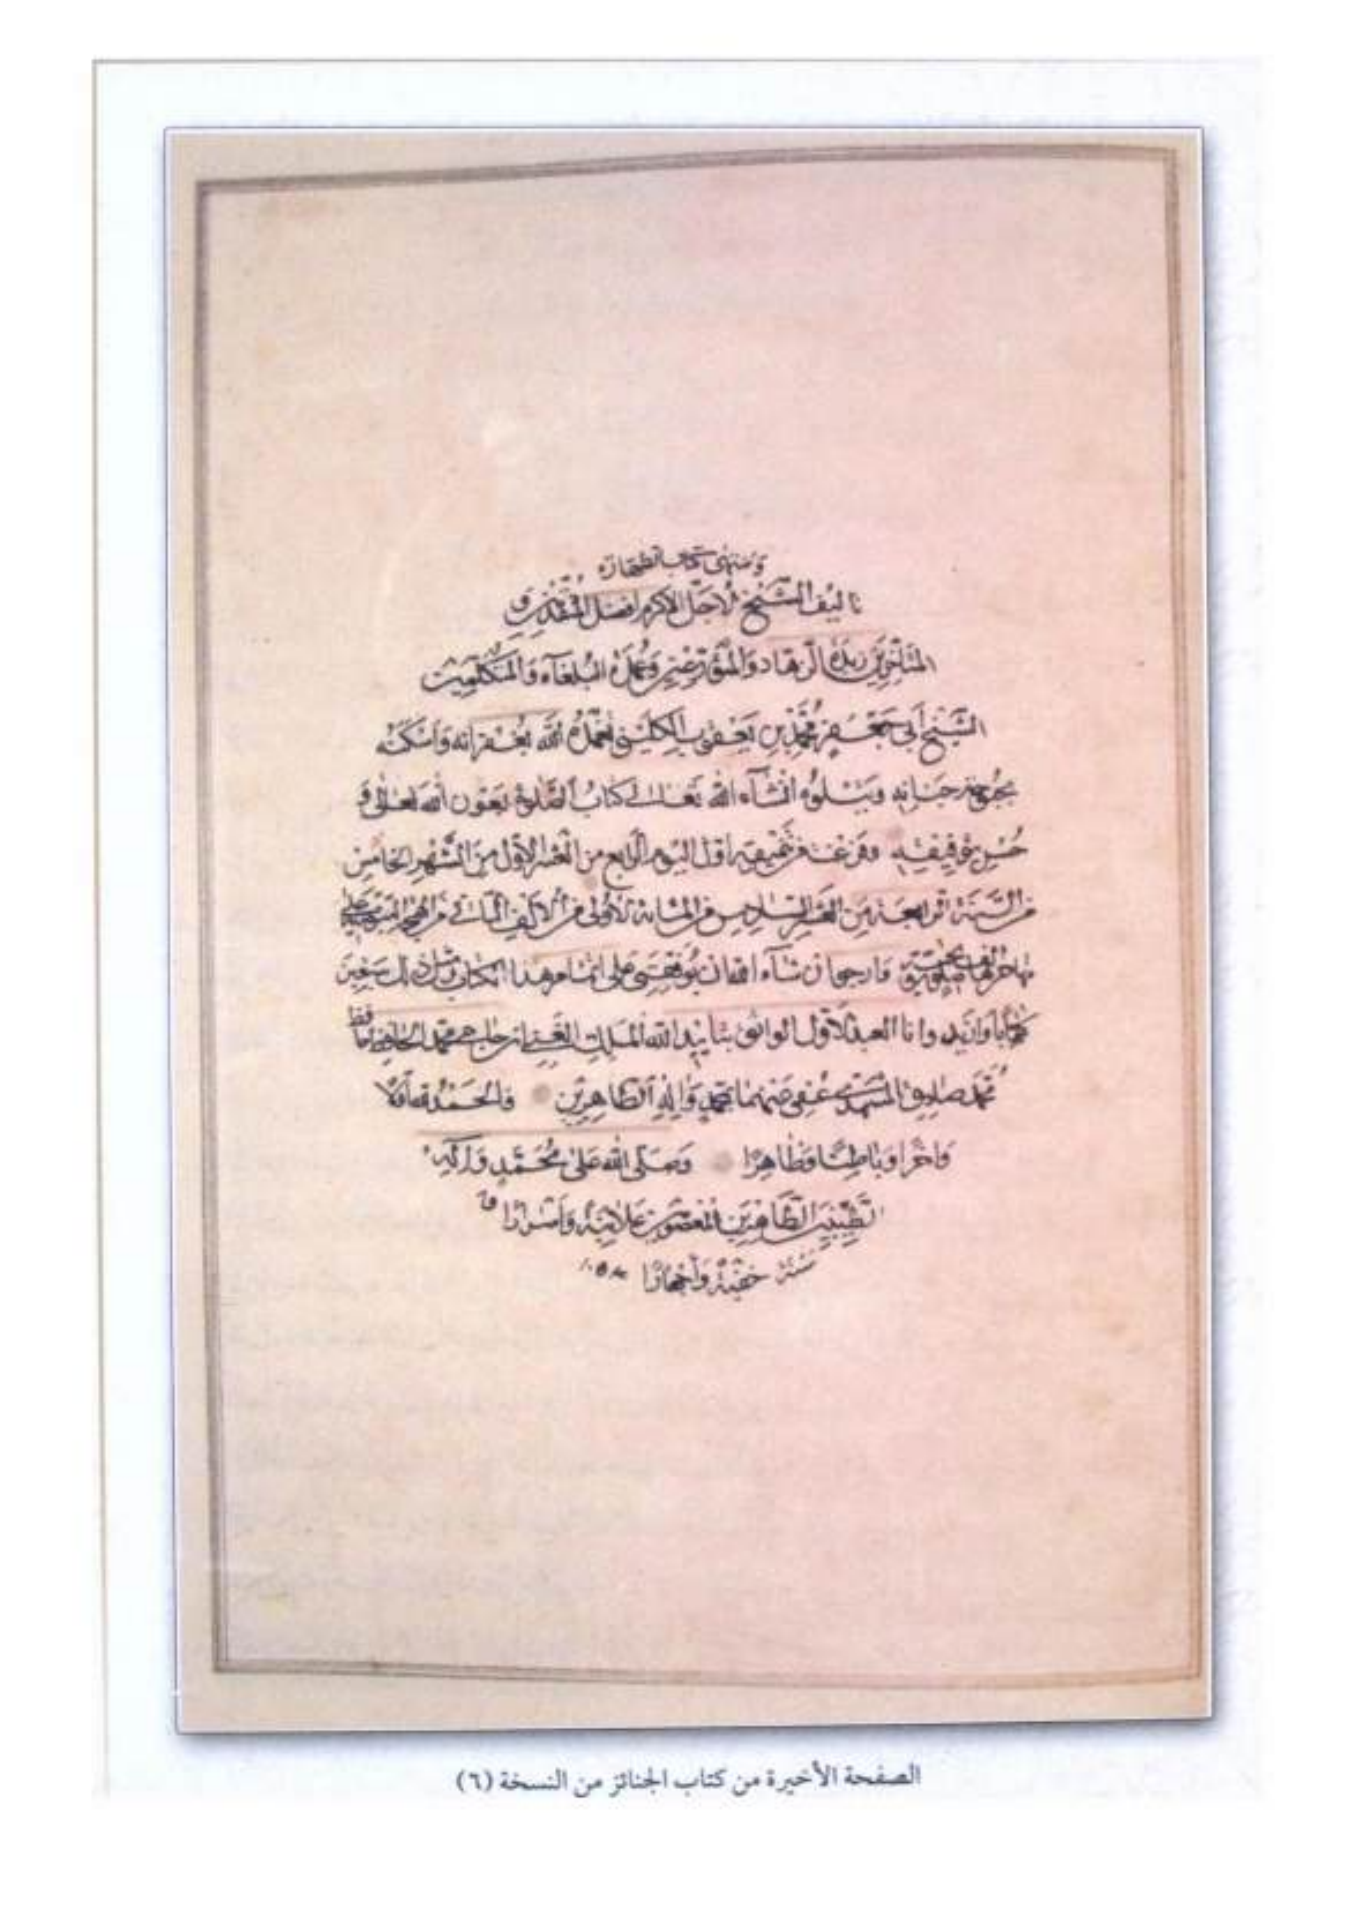 ومنتهى كتاب الطهارة
تاليف الشيخ الاجل الاكرم افضل المتقدمين و
المتاخرين زبدة الزهاد والمتورعين وعمدة البلغاء والمتكلمين
الشيخ أبي جعفر محمد بن يعقوب الكليني تغمده الله بغفرانه واسكنه
بحبوحة جنانه ويتلوه انشآء الله تعالى كتاب الصلوة بعون الله تعالى و
حسن توفيقه وفرغت من تنميقه اول اليوم الرابع من العشر الاول من الشهر الخامس
من السنة الرابعة من العشر السادس من المائة الاولى من الالف الثاني من الهجرة
وارجو ان شآء الله ان يوفقني على اتمام هذا الكتاب
كتابا وازيد وانا العبد الاقل الواثق بتاييد الله الملك الغني ابن حاجي محمد
محمد صادق عفي عنهما بمحمد واله الطاهرين والحمد لله أولا
واخرا وباطنا وظاهرا وصلى الله على محمد وآله
الطيبين الطاهرين المعصومين علانية واسرارا
سنة خفية واجهارا
الصفحة الأخيرة من كتاب الجنائز من النسخة (٦)